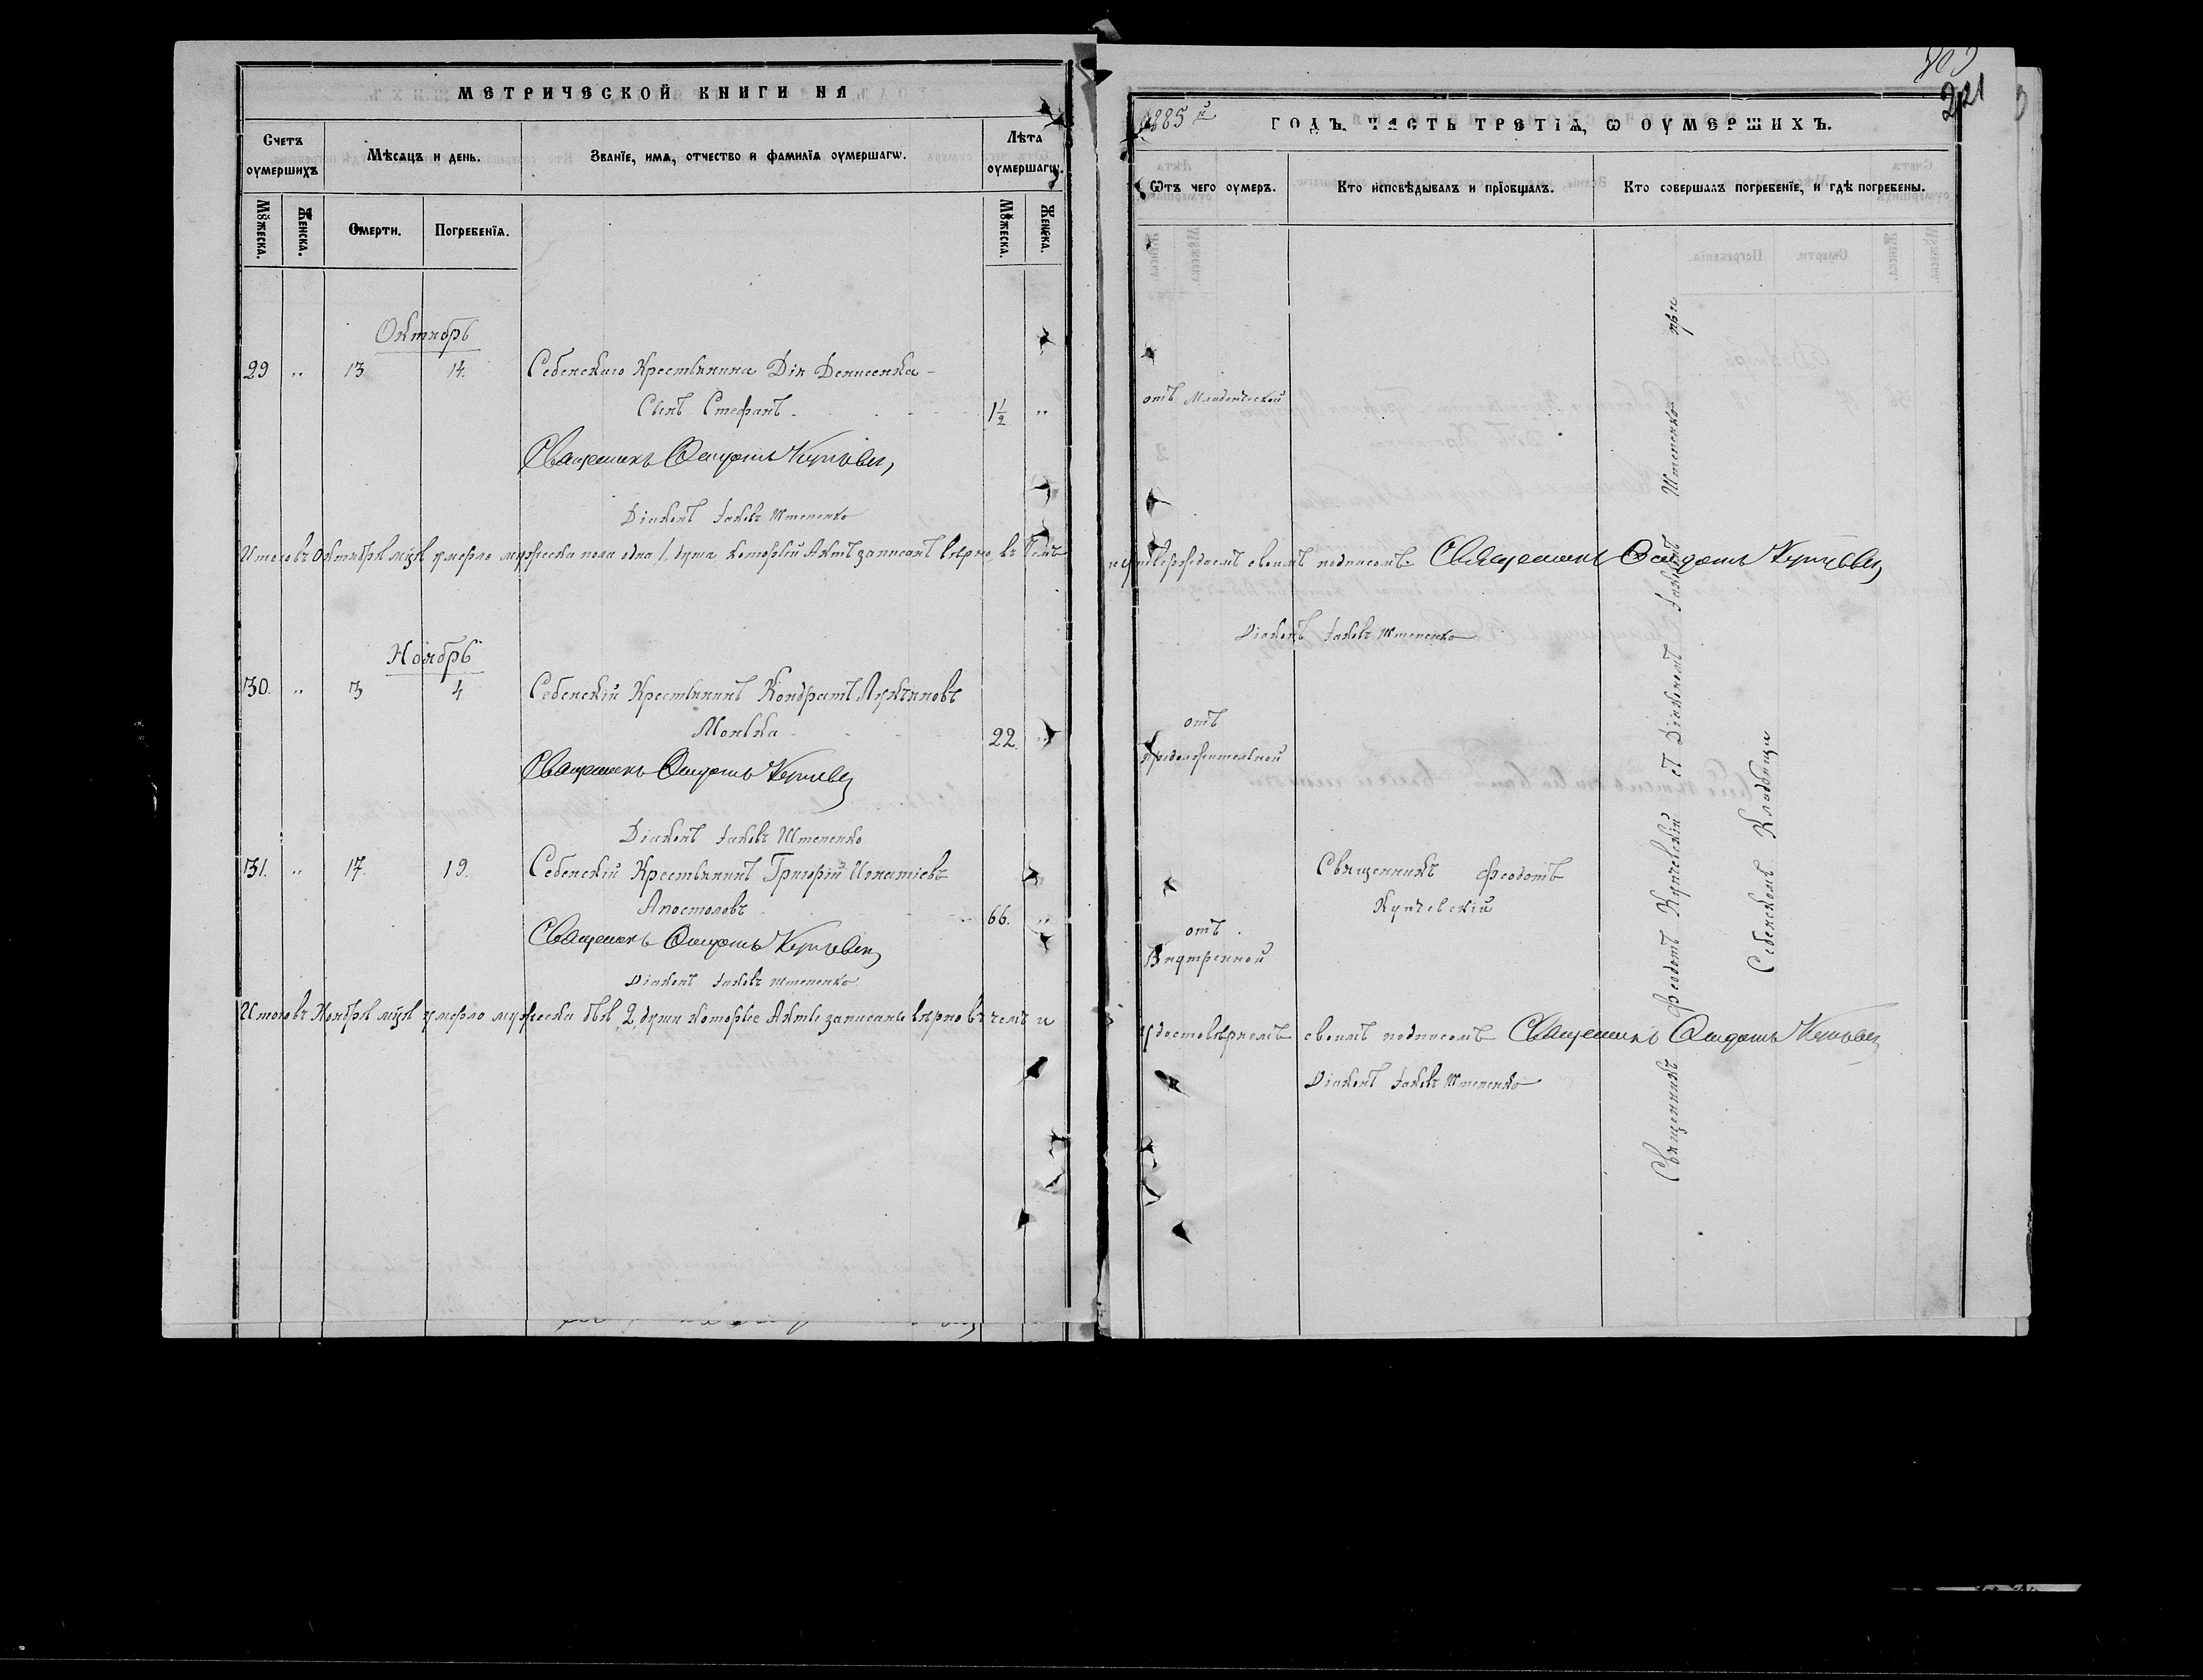 МЕТРИЧЕСКОЙ КНИГИ НА
Счетъ оумершихъ
Мѣсяцъ и день.
Званїе, имя, отчество и фамилїя оумершагѡ.
Лѣта оумершагѡ.
Мꙋжеска.
Женска.
Смерти.
Погребенїя.
Мꙋжеска.
Женска.
Октябрь
29 „ 13 14. Себенскаго Крестьянина Дія Денисенка
Сынъ Стефанъ 1½ „
Священникъ Феодотъ Купчевскій
Діаконъ Іаковъ Штепенко
Итого въ Октябрѣ мцѣ умерло мужеска пола одна 1, душа, который Актъ записанъ вѣрно, въ чемъ
Ноябрь
30. „ 3 4 Себенскій Крестьянинъ Кондратъ Лукьяновъ
Монька 22. „
Священникъ Феодотъ Купчевскій
Діаконъ Іаковъ Штепенко
31. „ 17. 19. Себенскій Крестьянинъ Григорій Игнатіевъ
Апостоловъ 66. „
Священникъ Феодотъ Купчевскій
Діаконъ Іаковъ Штепенко
Итого въ Ноябрѣ мцѣ умерло мужеска двѣ, 2, души которые Акты записаны вѣрно въ чемъ и
221
1885й ГОДЪ. ЧАСТЬ ТРЕТІЯ, Ѡ ОУМЕРШИХЪ.
Ѿтъ чего оумеръ.
Кто исповѣдывалъ и прїобщалъ.
Кто совершалъ погребенїе, и гдѣ погребены.
отъ Младенческой
и утверждаемъ своимъ подписомъ. Священникъ Феодотъ Купчевскій
Діаконъ Іаковъ Штепенко
отъ
продолжительной
Священникъ Феодотъ
Купчевскій
отъ
Внутренной
удостовѣряемъ своимъ подписомъ Священникъ Феодотъ Купчевскій
Діаконъ Іаковъ Штепенко
Священникъ Феодотъ Купчевскій съ Діакономъ Іаковомъ Штепенко при
Себенскомъ Кладбищи